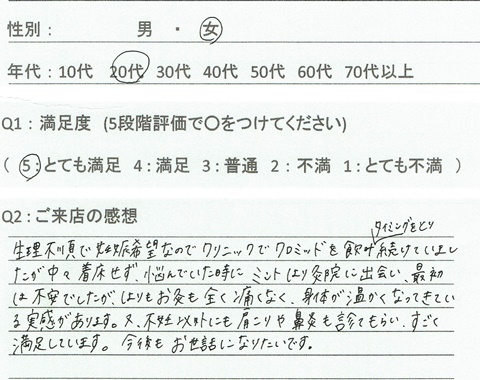 性別： 男 ・ 女
年代：10代 20代 30代 40代 50代 60代 70代以上
Q1：満足度 (5段階評価で〇をつけてください)
( 5：とても満足 4：満足 3：普通 2：不満 1：とても不満 )
Q2：ご来店の感想
タイミングをとり
生理不順で妊娠希望なのでクリニックでクロミッドを飲み続けていまし
たが中々着床せず、悩んでいた時にミントはり灸院に出会い、最初
は不安でしたがはりもお灸も全く痛くなく、身体が温かくなってきてい
る実感があります。又、不妊以外にも肩こりや鼻炎も診てもらい、すごく
満足しています。今後もお世話になりたいです。